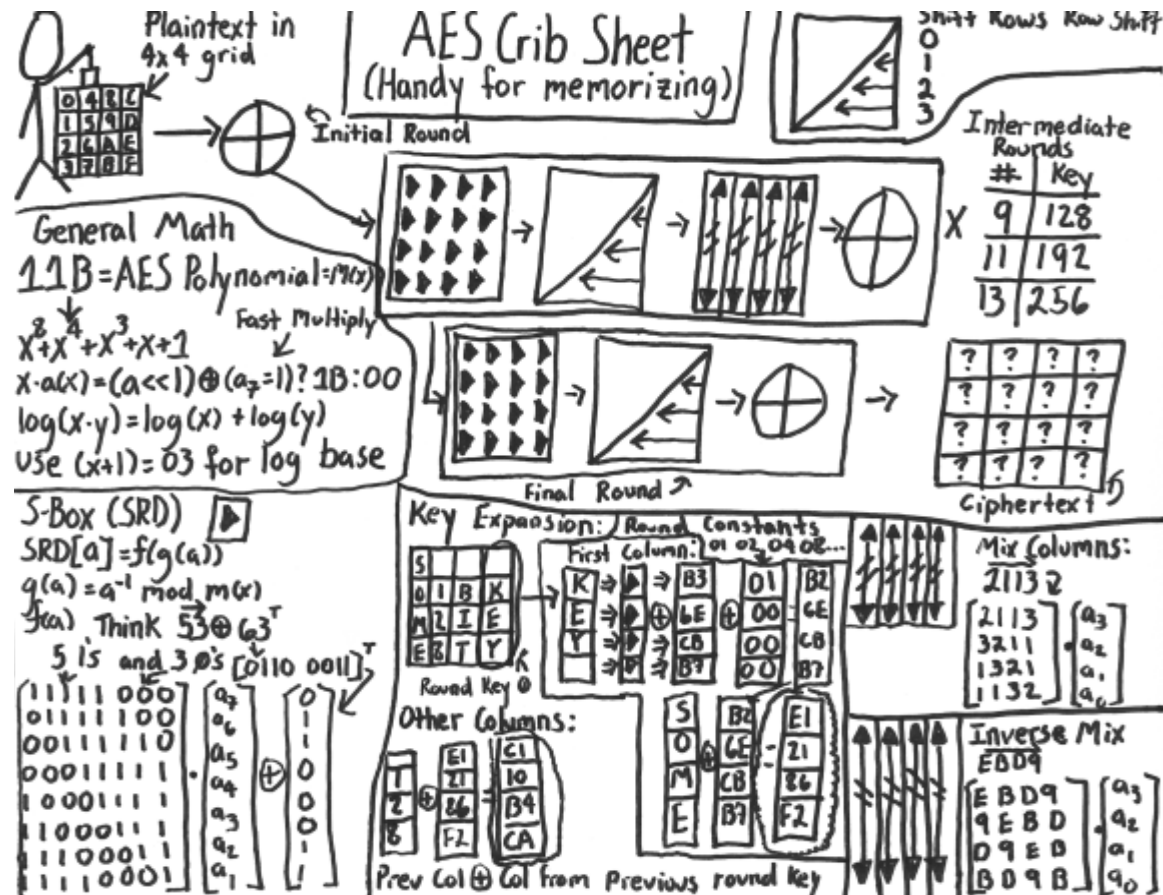 Plaintext in
4x4 grid
0 4 8 C
1 5 9 D
2 6 A E
3 7 B F
Initial Round
AES Crib Sheet
(Handy for memorizing)
Shift Rows Row Shift
0
1
2
3
Intermediate
Rounds
# Key
9 128
11 192
13 256
X
General Math
11B=AES Polynomial=M(x)
x⁸+x⁴+x³+x+1
Fast Multiply
x·a(x)=(a<<1)⊕(a₇=1)?1B:00
log(x·y)=log(x)+log(y)
Use (x+1)=03 for log base
Final Round
? ? ? ?
? ? ? ?
? ? ? ?
? ? ? ?
Ciphertext
S-Box (SRD)
SRD[a]=f(g(a))
g(a)=a⁻¹ mod m(x)
f(a) Think 53⊕63ᵀ
5 1's and 3 0's [0110 0011]ᵀ
1 1 1 1 1 0 0 0
0 1 1 1 1 1 0 0
0 0 1 1 1 1 1 0
0 0 0 1 1 1 1 1
1 0 0 0 1 1 1 1
1 1 0 0 0 1 1 1
1 1 1 0 0 0 1 1
1 1 1 1 0 0 0 1
a₇
a₆
a₅
a₄
a₃
a₂
a₁
⊕
0
1
1
0
0
0
1
1
Key Expansion: Round Constants
01 02 04 08...
First Column:
S
O 1 B K
M 2 I E
E 8 T Y
Round Key 0
K
E
Y
B3
6E
CB
B7
⊕
01
00
00
00
B2
6E
CB
B7
Other Columns:
1
2
8
⊕
E1
21
86
F2
=
C1
10
B4
CA
S
O
M
E
⊕
B2
6E
CB
B7
=
E1
21
86
F2
Prev Col ⊕ Col from Previous round key
Mix Columns:
2113
2 1 1 3
3 2 1 1
1 3 2 1
1 1 3 2
a₃
a₂
a₁
a₀
Inverse Mix
EBD9
E B D 9
9 E B D
D 9 E B
B D 9 B
a₃
a₂
a₁
a₀